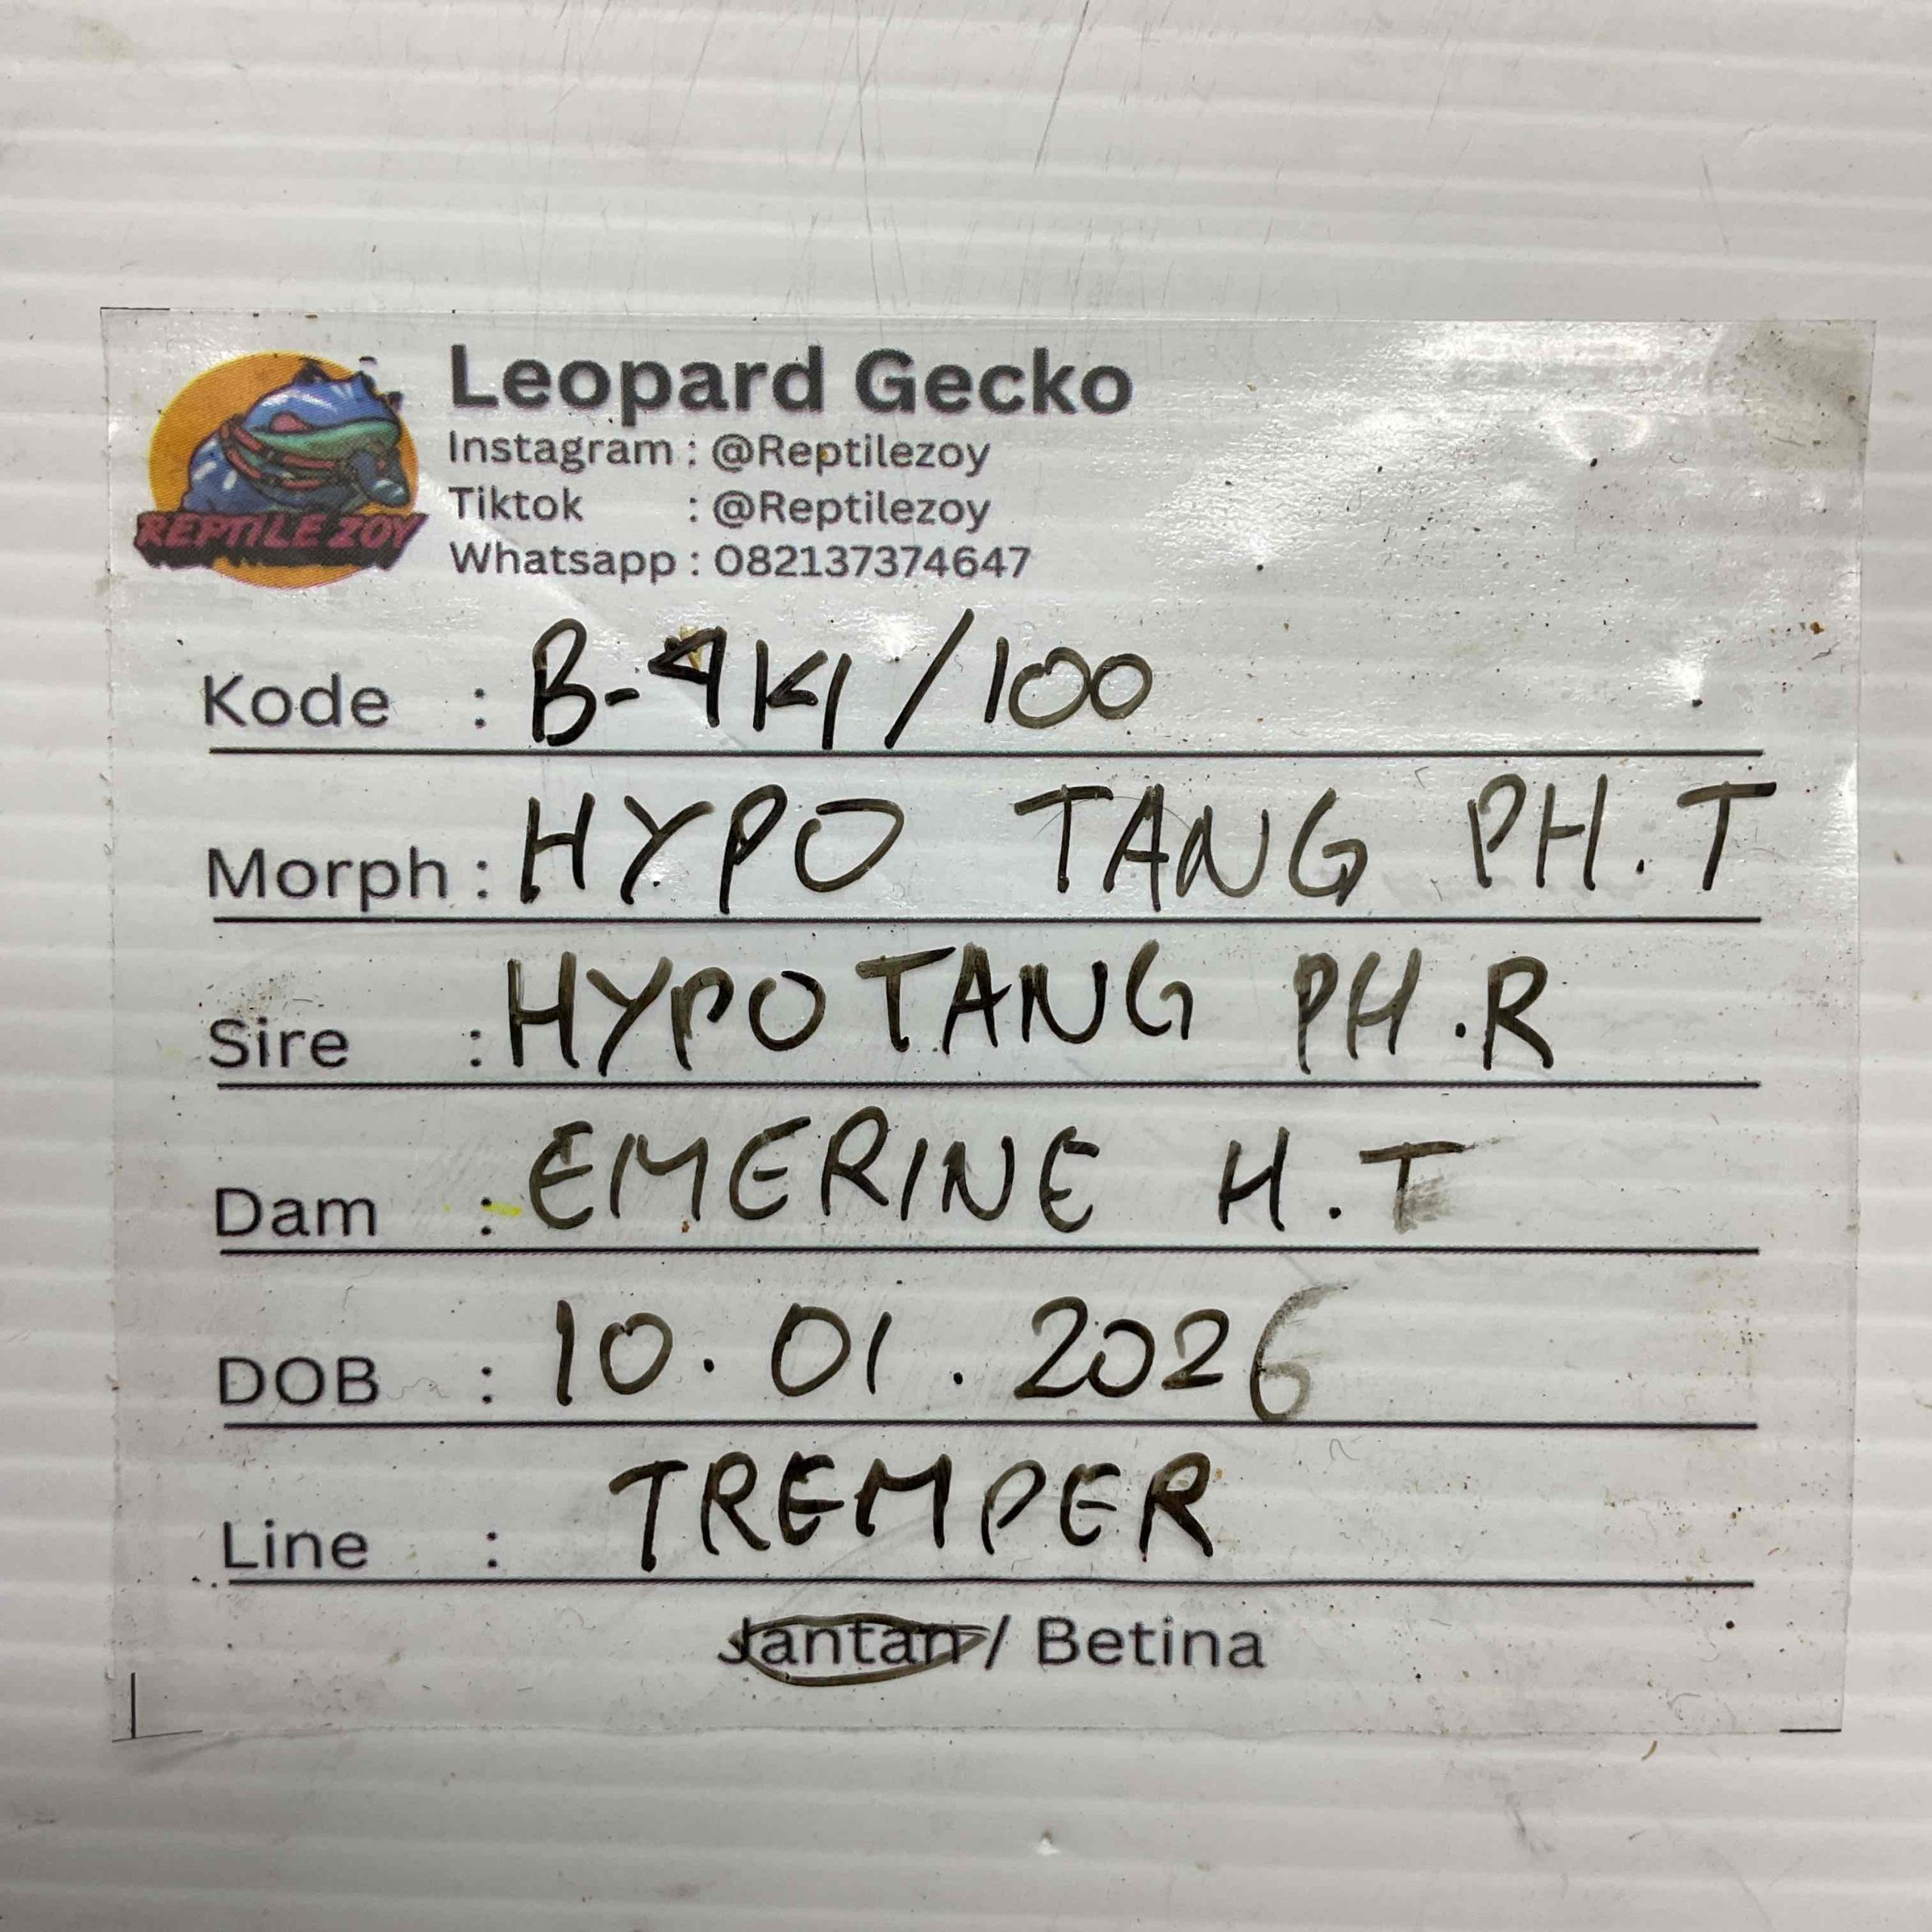 REPTILE ZOY
Leopard Gecko
Instagram : @Reptilezoy
Tiktok : @Reptilezoy
Whatsapp : 082137374647
Kode : B-4K1/100
Morph : HYPO TANG PH.T
Sire : HYPO TANG PH.R
Dam : EMERINE H.T
DOB : 10.01.2026
Line : TREMPER
Jantan / Betina